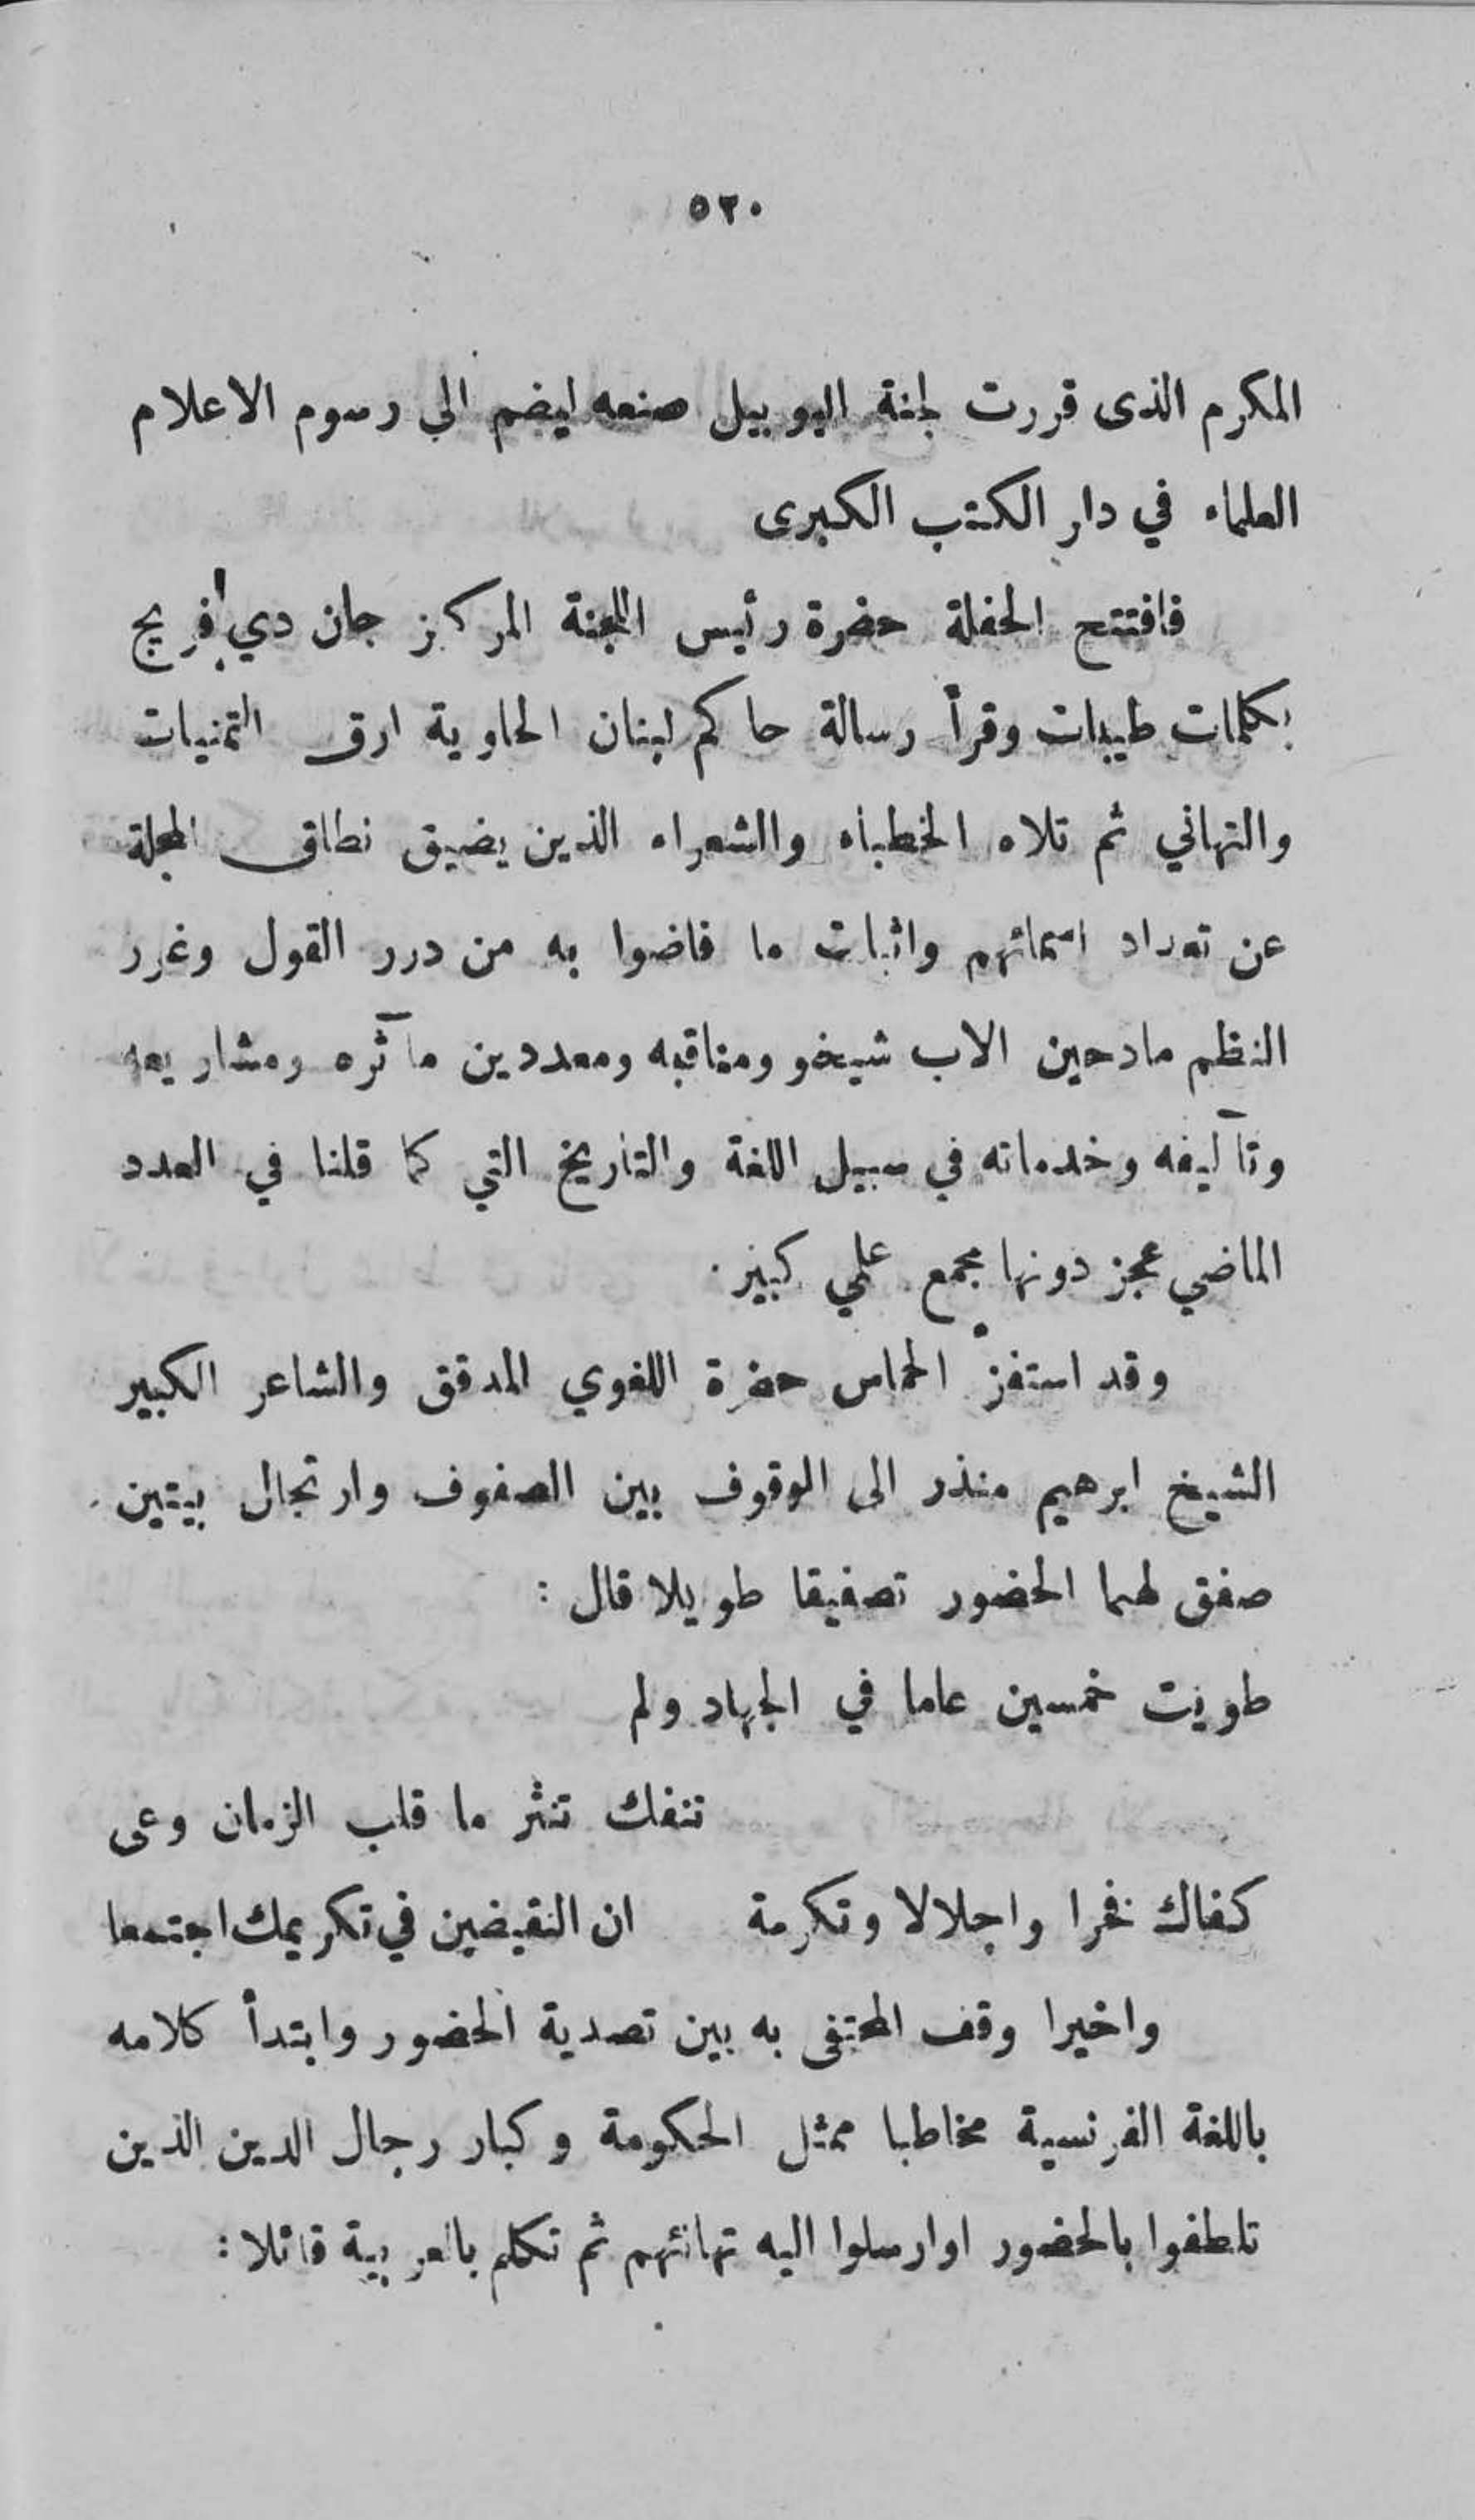 ٥٢٠
المكرم الذى قررت لجنة اليوبيل صنعه ليضم الى رسوم الاعلام
العلماء في دار الكتب الكبرى
فافتتح الحفلة حضرة رئيس اللجنة المركز جان دي فريج
بكلمات طيبات وقرأ رسالة حاكم لبنان الحاوية ارق التمنيات
والتهاني ثم تلاه الخطباء والشعراء الذين يضيق نطاق المجلة
عن تعداد اسمائهم واثبات ما فاضوا به من درر القول وغرر
النظم مادحين الاب شيخو ومناقبه ومعددين مآثره ومشاريعه
وتآليفه وخدماته في سبيل اللغة والتاريخ التي كما قلنا في العدد
الماضي عجز دونها مجمع علمي كبير.
وقد استفز الحماس حضرة اللغوي المدقق والشاعر الكبير
الشيخ ابرهيم منذر الى الوقوف بين الصفوف وارتجال بيتين
صفق لهما الحضور تصفيقا طويلا قال :
طويت خمسين عاما في الجهاد ولم
تنفك تنثر ما قلب الزمان وعى
كفاك فخرا واجلالا وتكرمة ان النقيضين في تكريمك اجتمعا
واخيرا وقف المحتفى به بين تصدية الحضور وابتدأ كلامه
باللغة الفرنسية مخاطبا ممثل الحكومة وكبار رجال الدين الذين
تلطفوا بالحضور اوارسلوا اليه تهانئهم ثم تكلم بالعربية قائلا :